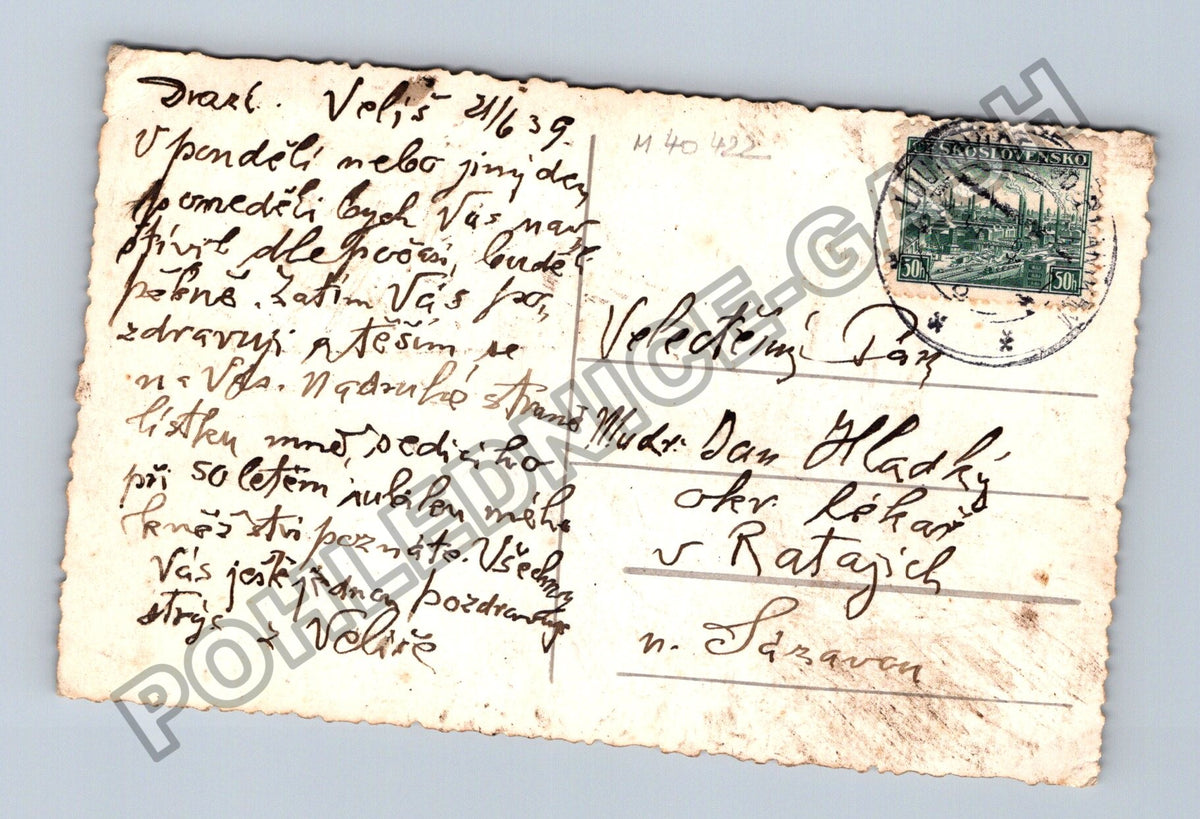 Drazí. Veliš 21/6 39.
V pondělí nebo jiný den
pomeděli bych Vás nav
štívil dle počasí, buděli
pěkně. Zatím Vás po,
zdravuji a těším se
na Vás. Na druhé straně
lístku mně, sedícího
při 50 letém jubileu mého
kněžství poznáte. Všechny
Vás ještě jednou pozdravuje
strýc z Veliše
M 40 422
ČESKOSLOVENSKO
50h 50h
Velectěný Pán
Mudr. Jan Hladký
okr. lékař
v Ratajích
n. Sázavou
POHLEDNICE-GACH